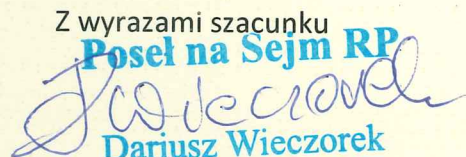 Z wyrazami szacunku
Poseł na Sejm RP
DWieczorek
Dariusz Wieczorek